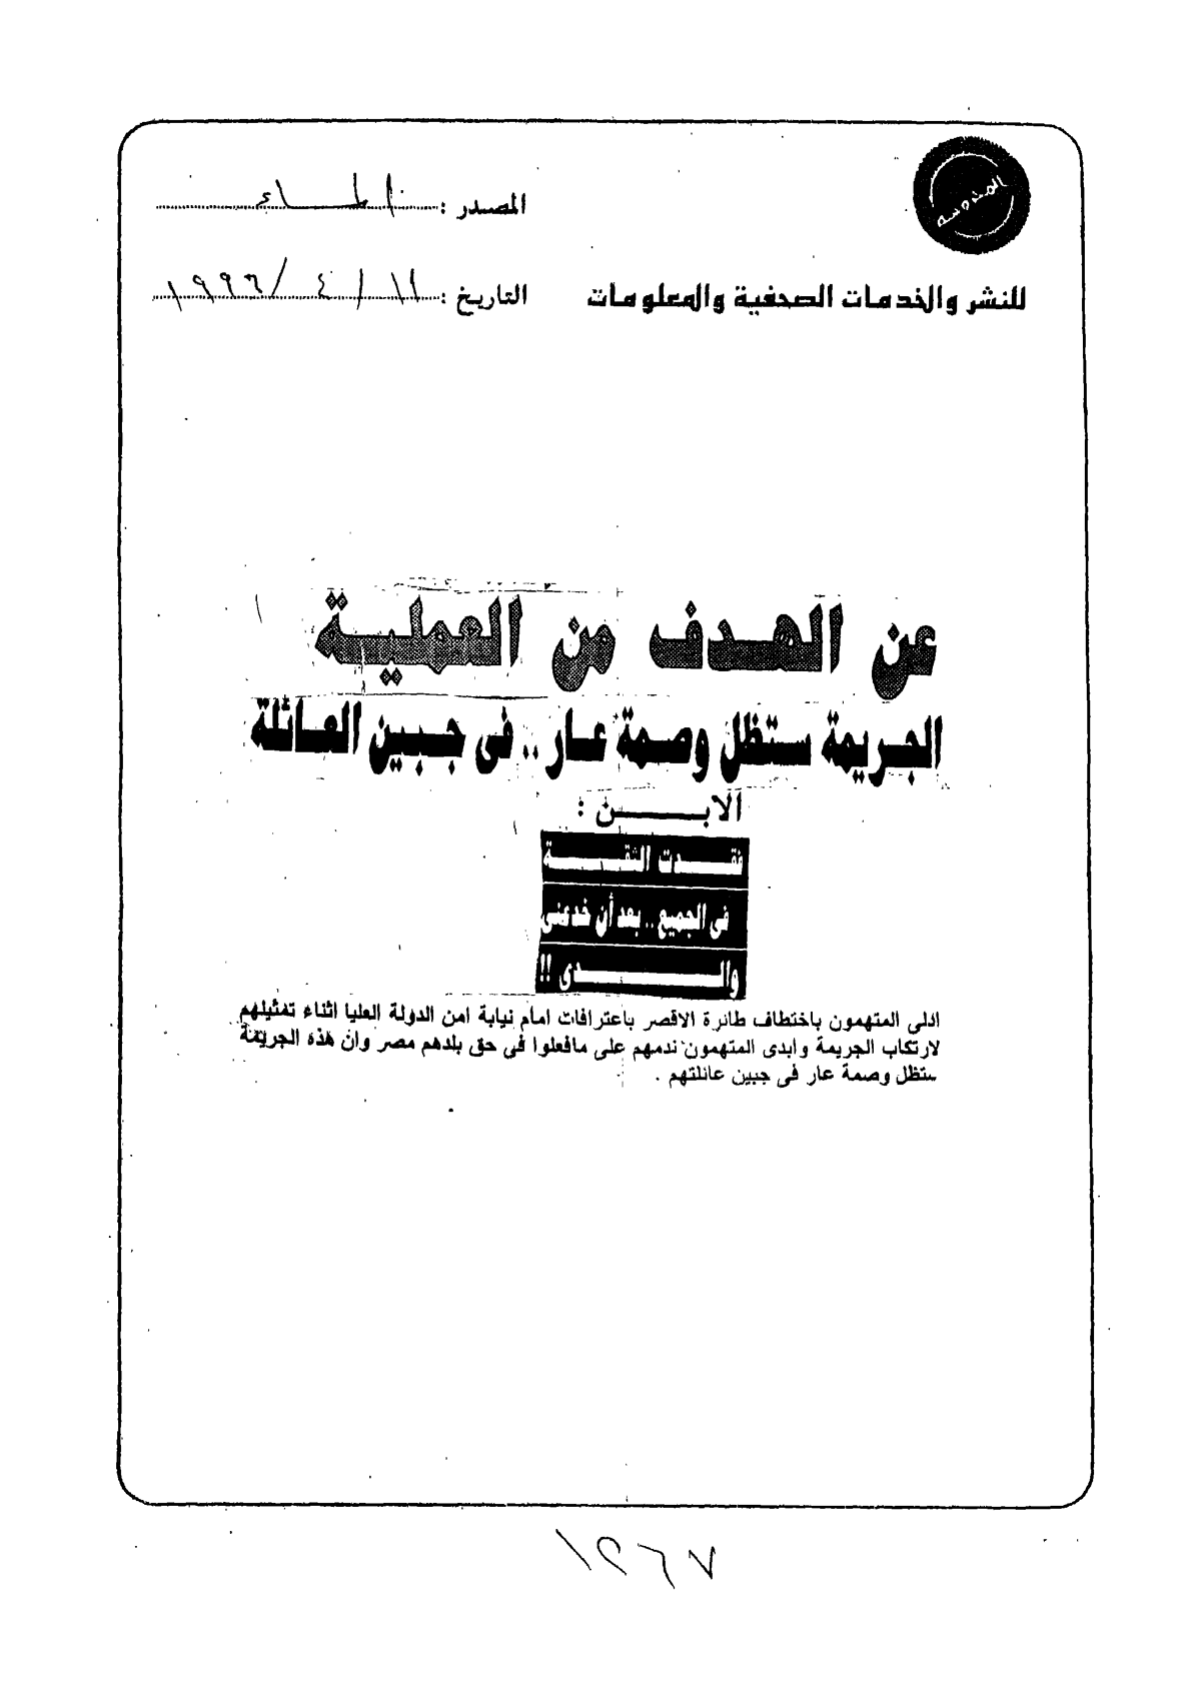 المدوسه
المصدر : المساء
للنشر والخدمات الصحفية والمعلومات
التاريخ : ١٢ / ٤ / ١٩٩٦
عن الهدف من العملية
الجريمة ستظل وصمة عار .. فى جبين العائلة
الابن :
فقدت الثقة
فى الجميع .. بعد أن خدعنى
والدى !!
ادلى المتهمون باختطاف طائرة الاقصر باعترافات امام نيابة امن الدولة العليا اثناء تمثيلهم
لارتكاب الجريمة وابدى المتهمون ندمهم على مافعلوا فى حق بلدهم مصر وان هذه الجريمة
ستظل وصمة عار فى جبين عائلتهم .